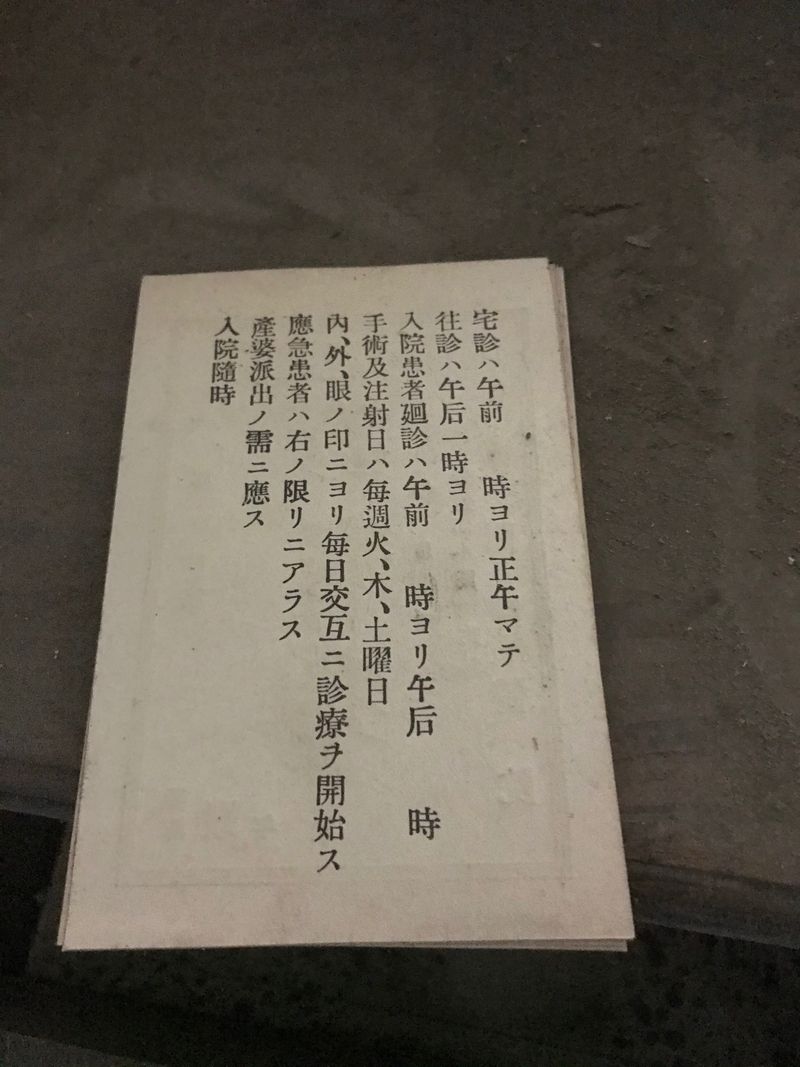 宅診ハ午前　時ヨリ正午マテ
往診ハ午后一時ヨリ
入院患者廻診ハ午前　時ヨリ午后　時
手術及注射日ハ每週火、木、土曜日
內、外、眼ノ印ニヨリ每日交互ニ診療ヲ開始ス
應急患者ハ右ノ限リニアラス
產婆派出ノ需ニ應ス
入院隨時